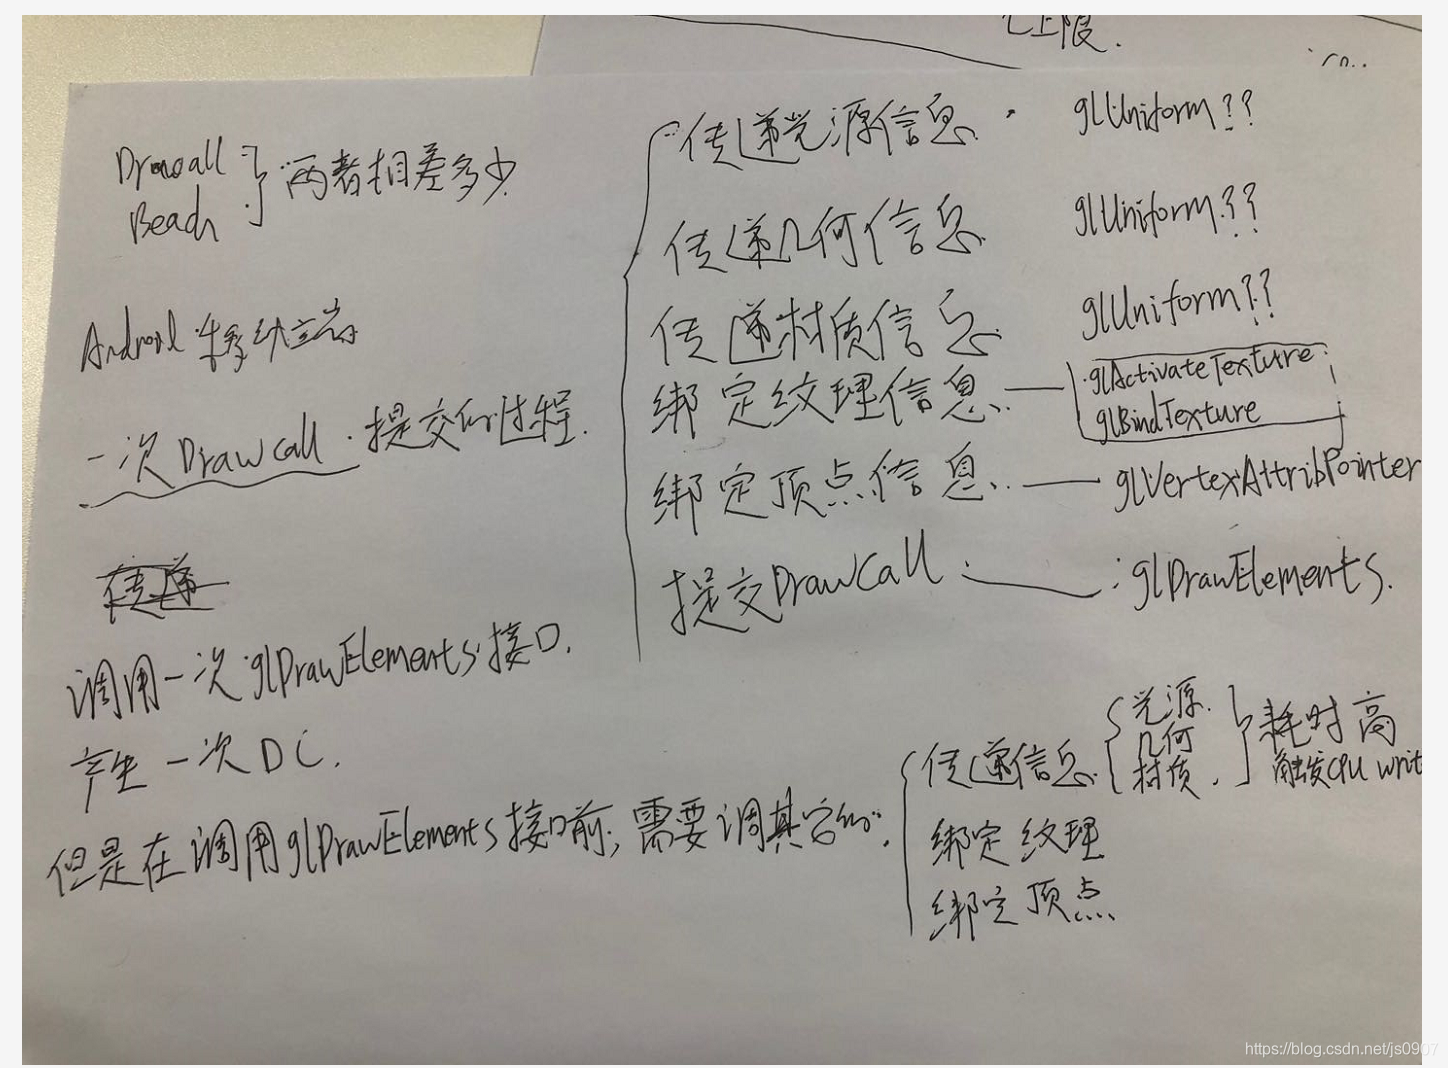 上限.
Drawcall
Beach
两者相差多少
Android
一次Drawcall.提交的过程.
调用一次glDrawElements接口.
产生一次DC.
但是在调用glDrawElements接口前,需要调其它的.
传递光源信息. glUniform??
传递几何信息 glUniform??
传递材质信息 glUniform??
绑定纹理信息 glActivateTexture
glBindTexture
绑定顶点信息 glVertexAttribPointer
提交DrawCall glDrawElements.
传递信息
光源.
几何
材质.
耗时高
触发CPU writ
绑定纹理
绑定顶点
https://blog.csdn.net/js0907